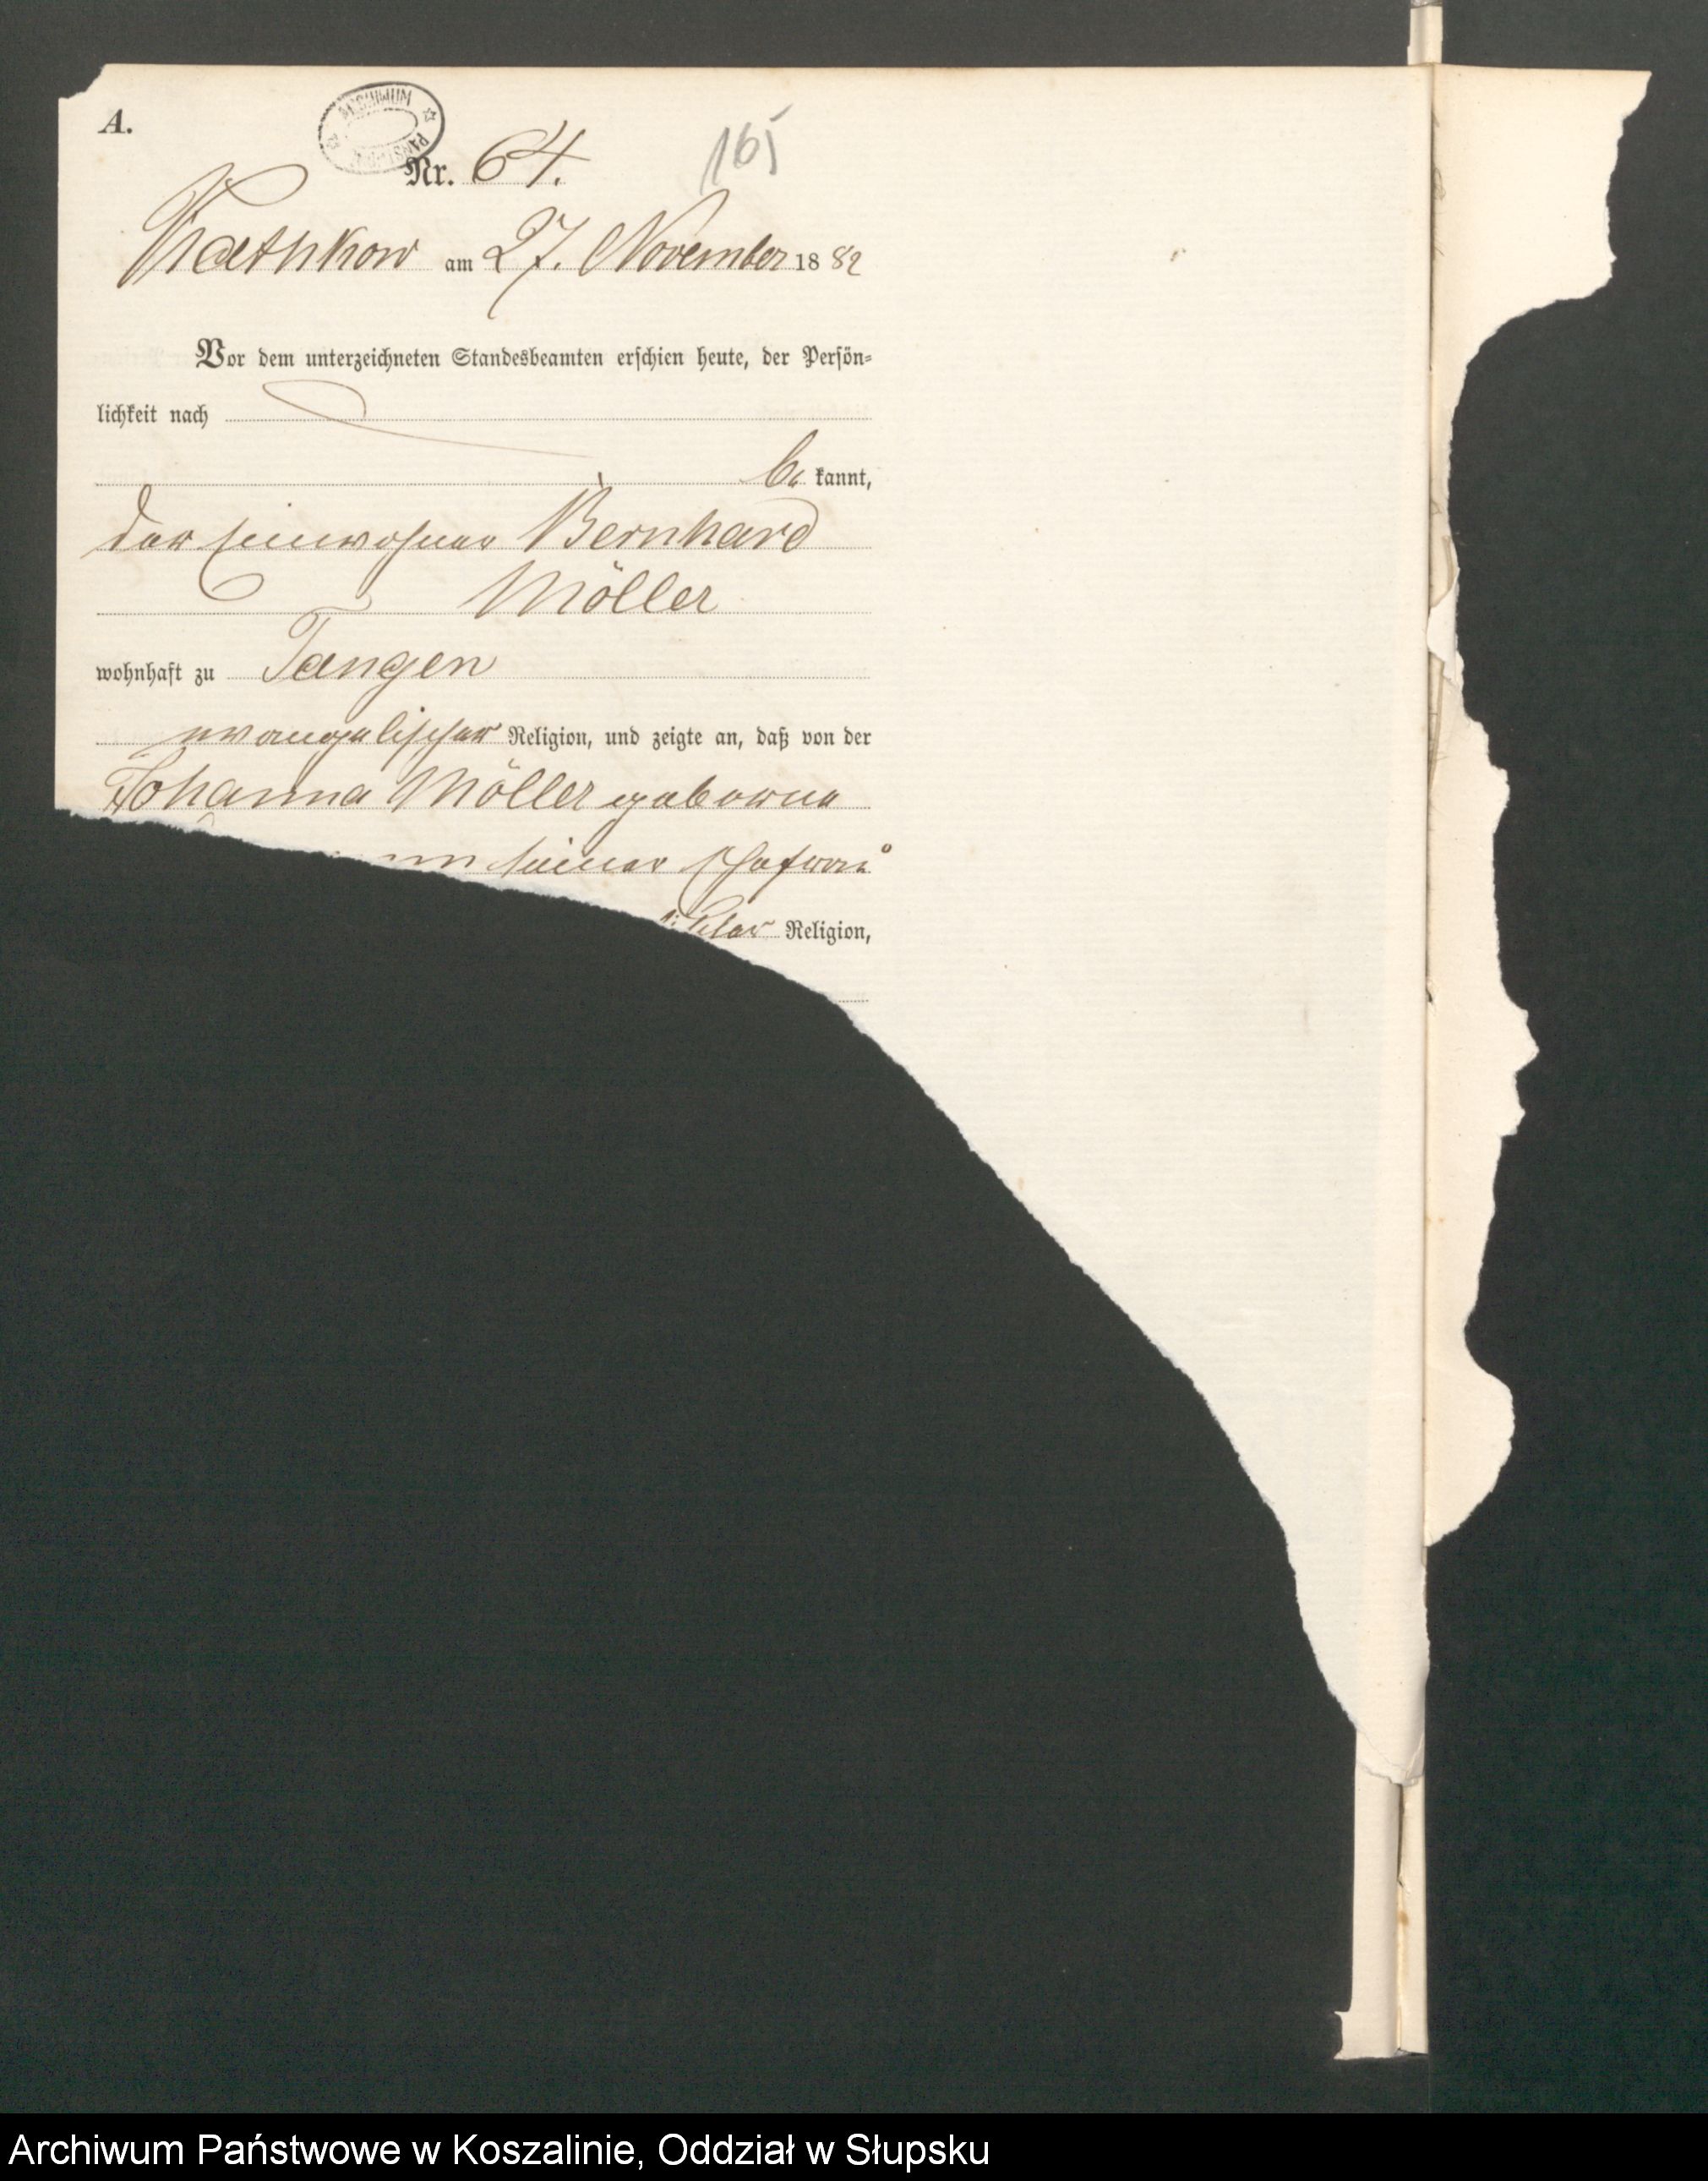 A.
ARCHIWUM
Nr. 64.
165
Kathkow am 27. November 1882
Vor dem unterzeichneten Standesbeamten erschien heute, der Persön=
lichkeit nach
be kannt,
der Einwohner Bernhard
Möller
wohnhaft zu Tangen
evangelischer Religion, und zeigte an, daß von der
Johanna Möller geborene
seiner Ehefrau
Religion,
Archiwum Państwowe w Koszalinie, Oddział w Słupsku